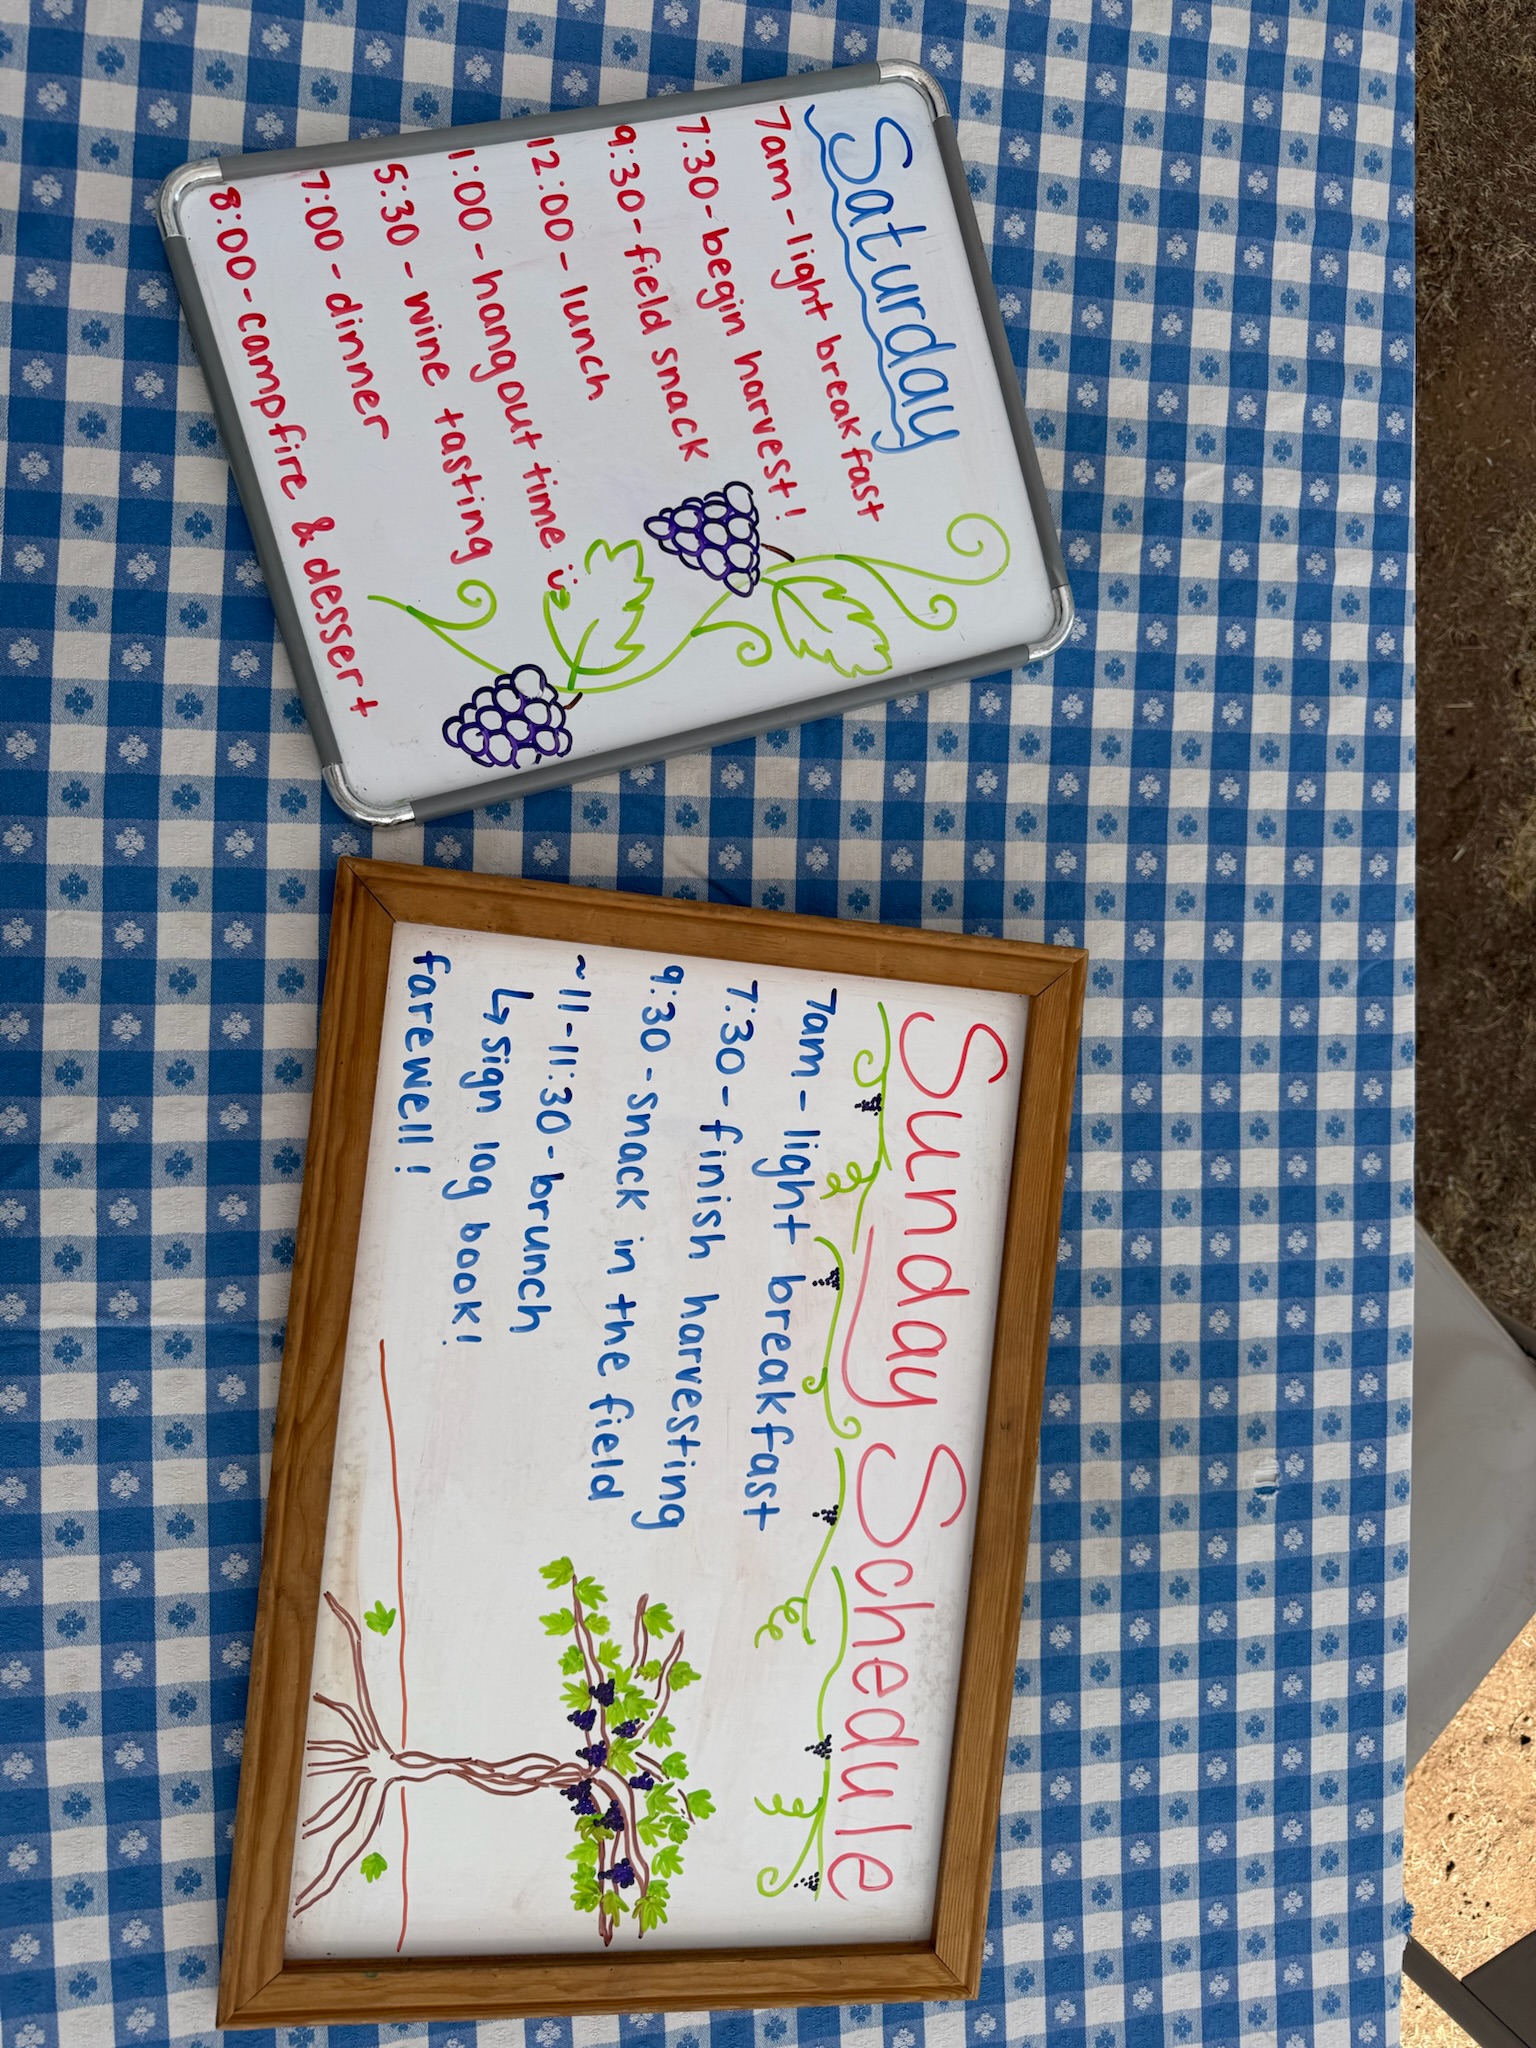 Saturday
7am - light breakfast
7:30 - begin harvest!
9:30 - field snack
12:00 - lunch
1:00 - hang out time
5:30 - wine tasting
7:00 - dinner
8:00 - campfire & dessert
Sunday Schedule
7am - light breakfast
7:30 - finish harvesting
9:30 - snack in the field
~11-11:30 - brunch
↳ sign log book!
farewell!